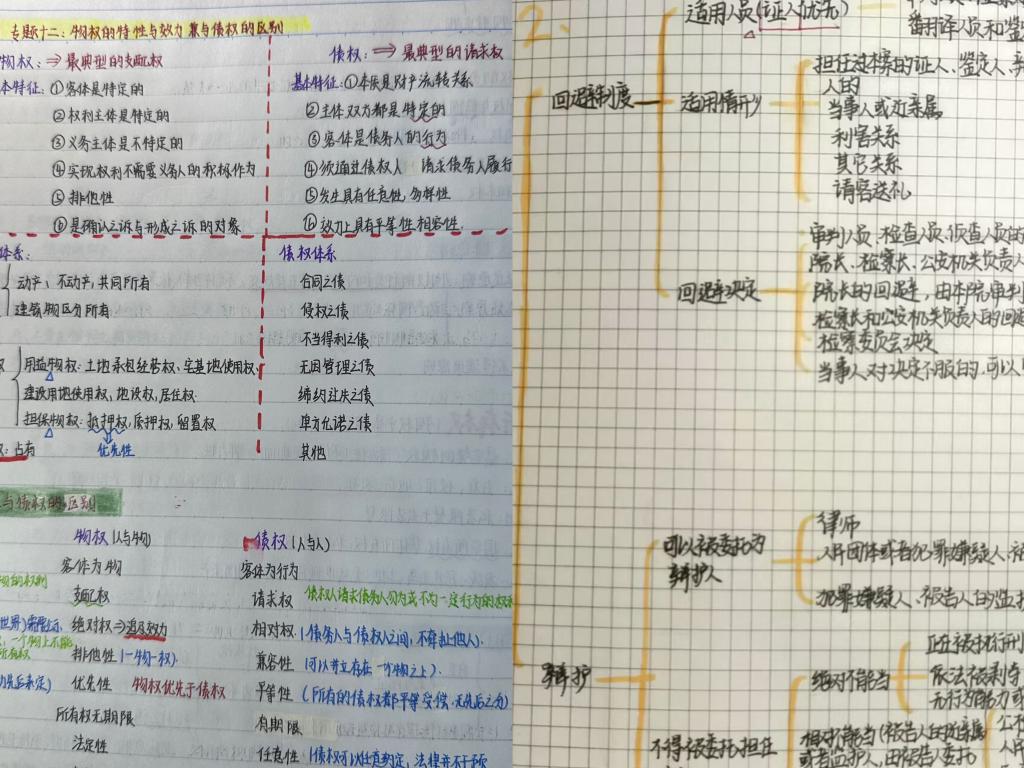 专题十二：物权的特性与效力兼与债权的区别
物权：⇒最典型的支配权
本特征：①客体是特定的
②权利主体是特定的
③义务主体是不特定的
④实现权利不需要义务人的积极作为
⑤排他性
⑥是确认之诉与形成之诉的对象
债权：⇒最典型的请求权
基本特征：①本质是财产流转关系
②主体双方都是特定的
③客体是债务人的行为
④须通过债权人 请求债务人履行
⑤发生具有任意性，
⑥效力上具有平等性相容性
体系：
动产、不动产，共同所有
建筑物区分所有
用益物权：土地承包经营权、宅基地使用权
建设用地使用权，地役权，居住权
担保物权：抵押权，质押权，留置权
优先性
占有
债权体系
合同之债
侵权之债
不当得利之债
无因管理之债
缔约过失之债
单方允诺之债
其他
与债权的区别
物权（人与物）
客体为物
支配权
绝对权⇒追及效力
排他性（一物一权）
优先性 物权优先于债权
所有权无期限
法定性
债权（人与人）
客体为行为
请求权
相对权（债务人与债权人之间，不牵扯他人）
兼容性（可以并立存在一个物之上）
平等性（所有的债权都平等受偿，无先后之分）
有期限
任意性（债权可以任意约定，法律并不干预
2、
适用人员（证人优先）
翻译人员和鉴
回避制度
适用情形
担任过本案的证人、鉴定人、
人的
当事人或近亲属
利害关系
其它关系
请客送礼
回避决定
审判人员、检查人员、侦查人员的
院长、检察长、公安机关负责人
院长的回避，由本院审判
检察长和公安机关负责人的回避
检察委员会决定
当事人对决定不服的，可以
辩护
可以被委托为
辩护人
律师
人民团体或者犯罪嫌疑人、被
犯罪嫌疑人、被告人的监护
不得被委托担任
绝对不能当
正在被执行刑
依法被剥夺
无行为能力或
相对不能当（被告人的近亲属
或者监护人，由被告人委托